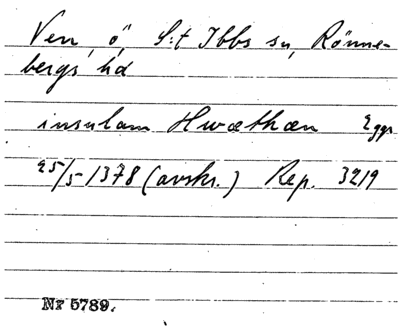 Ven, ö, S:t Ibbs sn, Rönne-
bergs hd
insulam Hwæthæn Eggr
25/5 1378 (avskr.) Rep. 3219
Nr 5789.